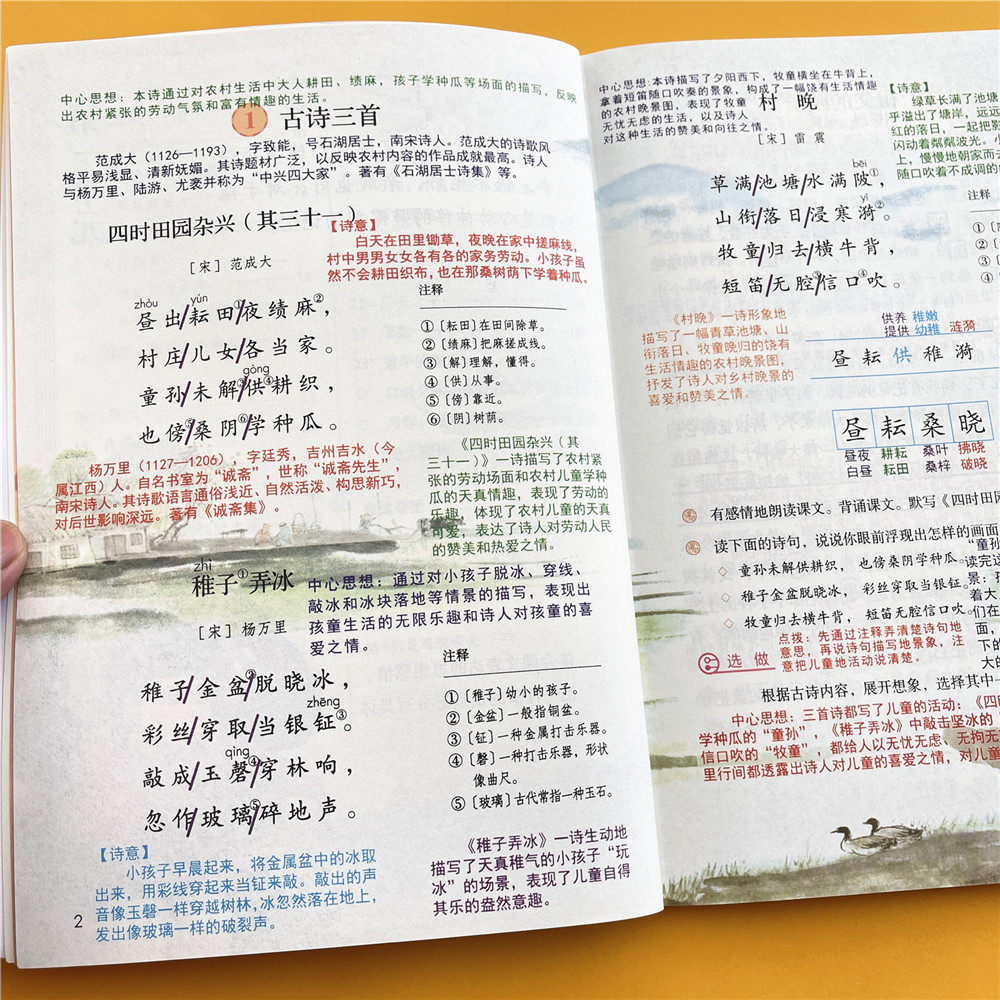 中心思想：本诗通过对农村生活中大人耕田、绩麻，孩子学种瓜等场面的描写，反映
出农村紧张的劳动气氛和富有情趣的生活。
1 古诗三首
范成大（1126—1193），字致能，号石湖居士，南宋诗人。范成大的诗歌风
格平易浅显、清新妩媚。其诗题材广泛，以反映农村内容的作品成就最高。诗人
与杨万里、陆游、尤袤并称为“中兴四大家”。著有《石湖居士诗集》等。
四时田园杂兴（其三十一）
［宋］范成大
【诗意】
白天在田里锄草，夜晚在家中搓麻线，
村中男男女女各有各的家务劳动。小孩子虽
然不会耕田织布，也在那桑树荫下学着种瓜。
zhòu yún
昼出/耘田①/夜绩麻②，
村庄/儿女/各当家。
gòng
童孙/未解③/供④耕织，
也傍⑤/桑阴⑥/学种瓜。
注释
①〔耘田〕在田间除草。
②〔绩麻〕把麻搓成线。
③〔解〕理解，懂得。
④〔供〕从事。
⑤〔傍〕靠近。
⑥〔阴〕树荫。
杨万里（1127—1206），字廷秀，吉州吉水（今
属江西）人。自名书室为“诚斋”，世称“诚斋先生”，
南宋诗人。其诗歌语言通俗浅近、自然活泼、构思新巧，
对后世影响深远。著有《诚斋集》。
《四时田园杂兴（其
三十一）》一诗描写了农村紧
张的劳动场面和农村儿童学种
瓜的天真情趣，表现了劳动的
乐趣，体现了农村儿童的天真
可爱，表达了诗人对劳动人民
的赞美和热爱之情。
zhì
稚子①弄冰
［宋］杨万里
中心思想：通过对小孩子脱冰、穿线、
敲冰和冰块落地等情景的描写，表现出
孩童生活的无限乐趣和诗人对孩童的喜
爱之情。
稚子/金盆②/脱晓冰，
zhēng
彩丝/穿取/当银钲③。
qìng
敲成/玉磬④/穿林响，
忽作/玻璃⑤/碎地声。
注释
①〔稚子〕幼小的孩子。
②〔金盆〕一般指铜盆。
③〔钲〕一种金属打击乐器。
④〔磬〕一种打击乐器，形状
像曲尺。
⑤〔玻璃〕古代常指一种玉石。
【诗意】
小孩子早晨起来，将金属盆中的冰取
出来，用彩线穿起来当钲来敲。敲出的声
音像玉磬一样穿越树林，冰忽然落在地上，
发出像玻璃一样的破裂声。
《稚子弄冰》一诗生动地
描写了天真稚气的小孩子“玩
冰”的场景，表现了儿童自得
其乐的盎然意趣。
2
中心思想：本诗描写了夕阳西下，牧童横坐在牛背上，
拿着短笛随口吹奏的景象，构成了一幅饶有生活情趣
的农村晚景图，表现了牧童
无忧无虑的生活，以及诗人
对这种生活的赞美和向往之情。
村晚
［宋］雷震
【诗意】
绿草长满了池塘
乎溢出了塘岸，远远
红的落日，一起把影
闪动着粼粼波光。小
上，慢慢地朝家而去
随口吹着不成调的
bēi
草满/池塘/水满陂①，
yī
山衔/落日/浸寒漪②。
牧童/归去/横牛背，
短笛/无腔③/信口④吹。
注释
①
②
③
④
《村晚》一诗形象地
描写了一幅青草池塘、山
衔落日、牧童晚归的饶有
生活情趣的农村晚景图，
抒发了诗人对乡村晚景的
喜爱和赞美之情。
供养 稚嫩
提供 幼稚 涟漪
昼 耘 供 稚 漪
昼 耘 桑 晓
昼夜 耕耘 桑叶 拂晓
白昼 耘田 桑梓 破晓
有感情地朗读课文。背诵课文。默写《四时田园
读下面的诗句，说说你眼前浮现出怎样的画面
◇ 童孙未解供耕织，也傍桑阴学种瓜。
◇ 稚子金盆脱晓冰，彩丝穿取当银钲。
◇ 牧童归去横牛背，短笛无腔信口吹。
“童孙
读完这
景：
着大
们在
面，
下的
大的
点拨：先通过注释弄清楚诗句地
意思，再说诗句描写地景象，注
意把儿童地活动说清楚。
选做
根据古诗内容，展开想象，选择其中一
中心思想：三首诗都写了儿童的活动：《四
学种瓜的“童孙”，《稚子弄冰》中敲击坚冰的
信口吹的“牧童”，都给人以无忧无虑、无拘无
里行间都透露出诗人对儿童的喜爱之情，对儿童